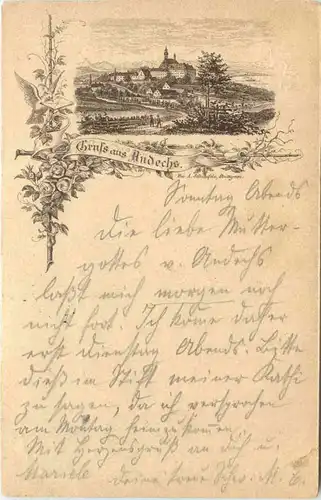 Gruß aus Andechs.
Sonntag Abends
Die liebe Mutter-
gottes v. Andechs
laßt mich morgen noch
nicht fort. Ich kome daher
erst Dienstag Abends. Bitte
dieß im Stift meiner Kathi
zu sagen, da ich versprochen
am Montag heimzukommen.
Mit Herzensgruß an dich u.
Mariele deine treue Schw. M.